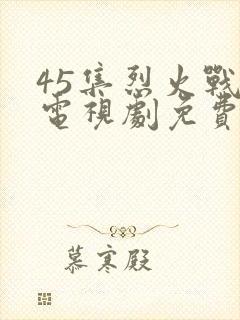 45集烈火戰
電視劇免費
慕寒殿